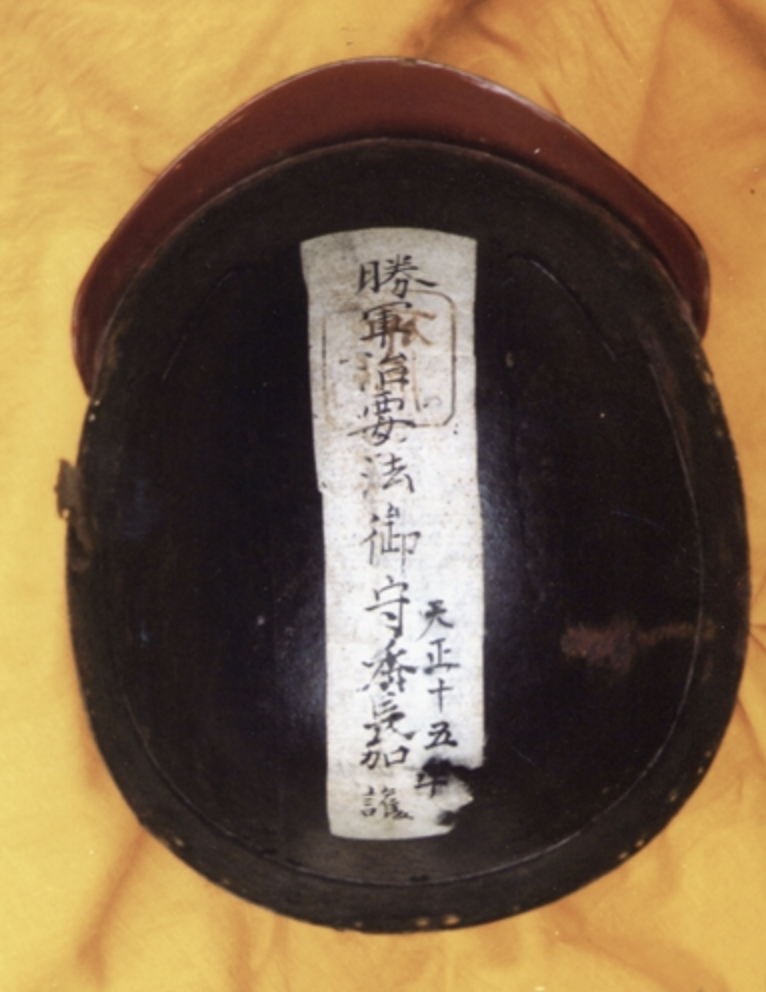 天正十五年
勝軍治要法御守齋長加護